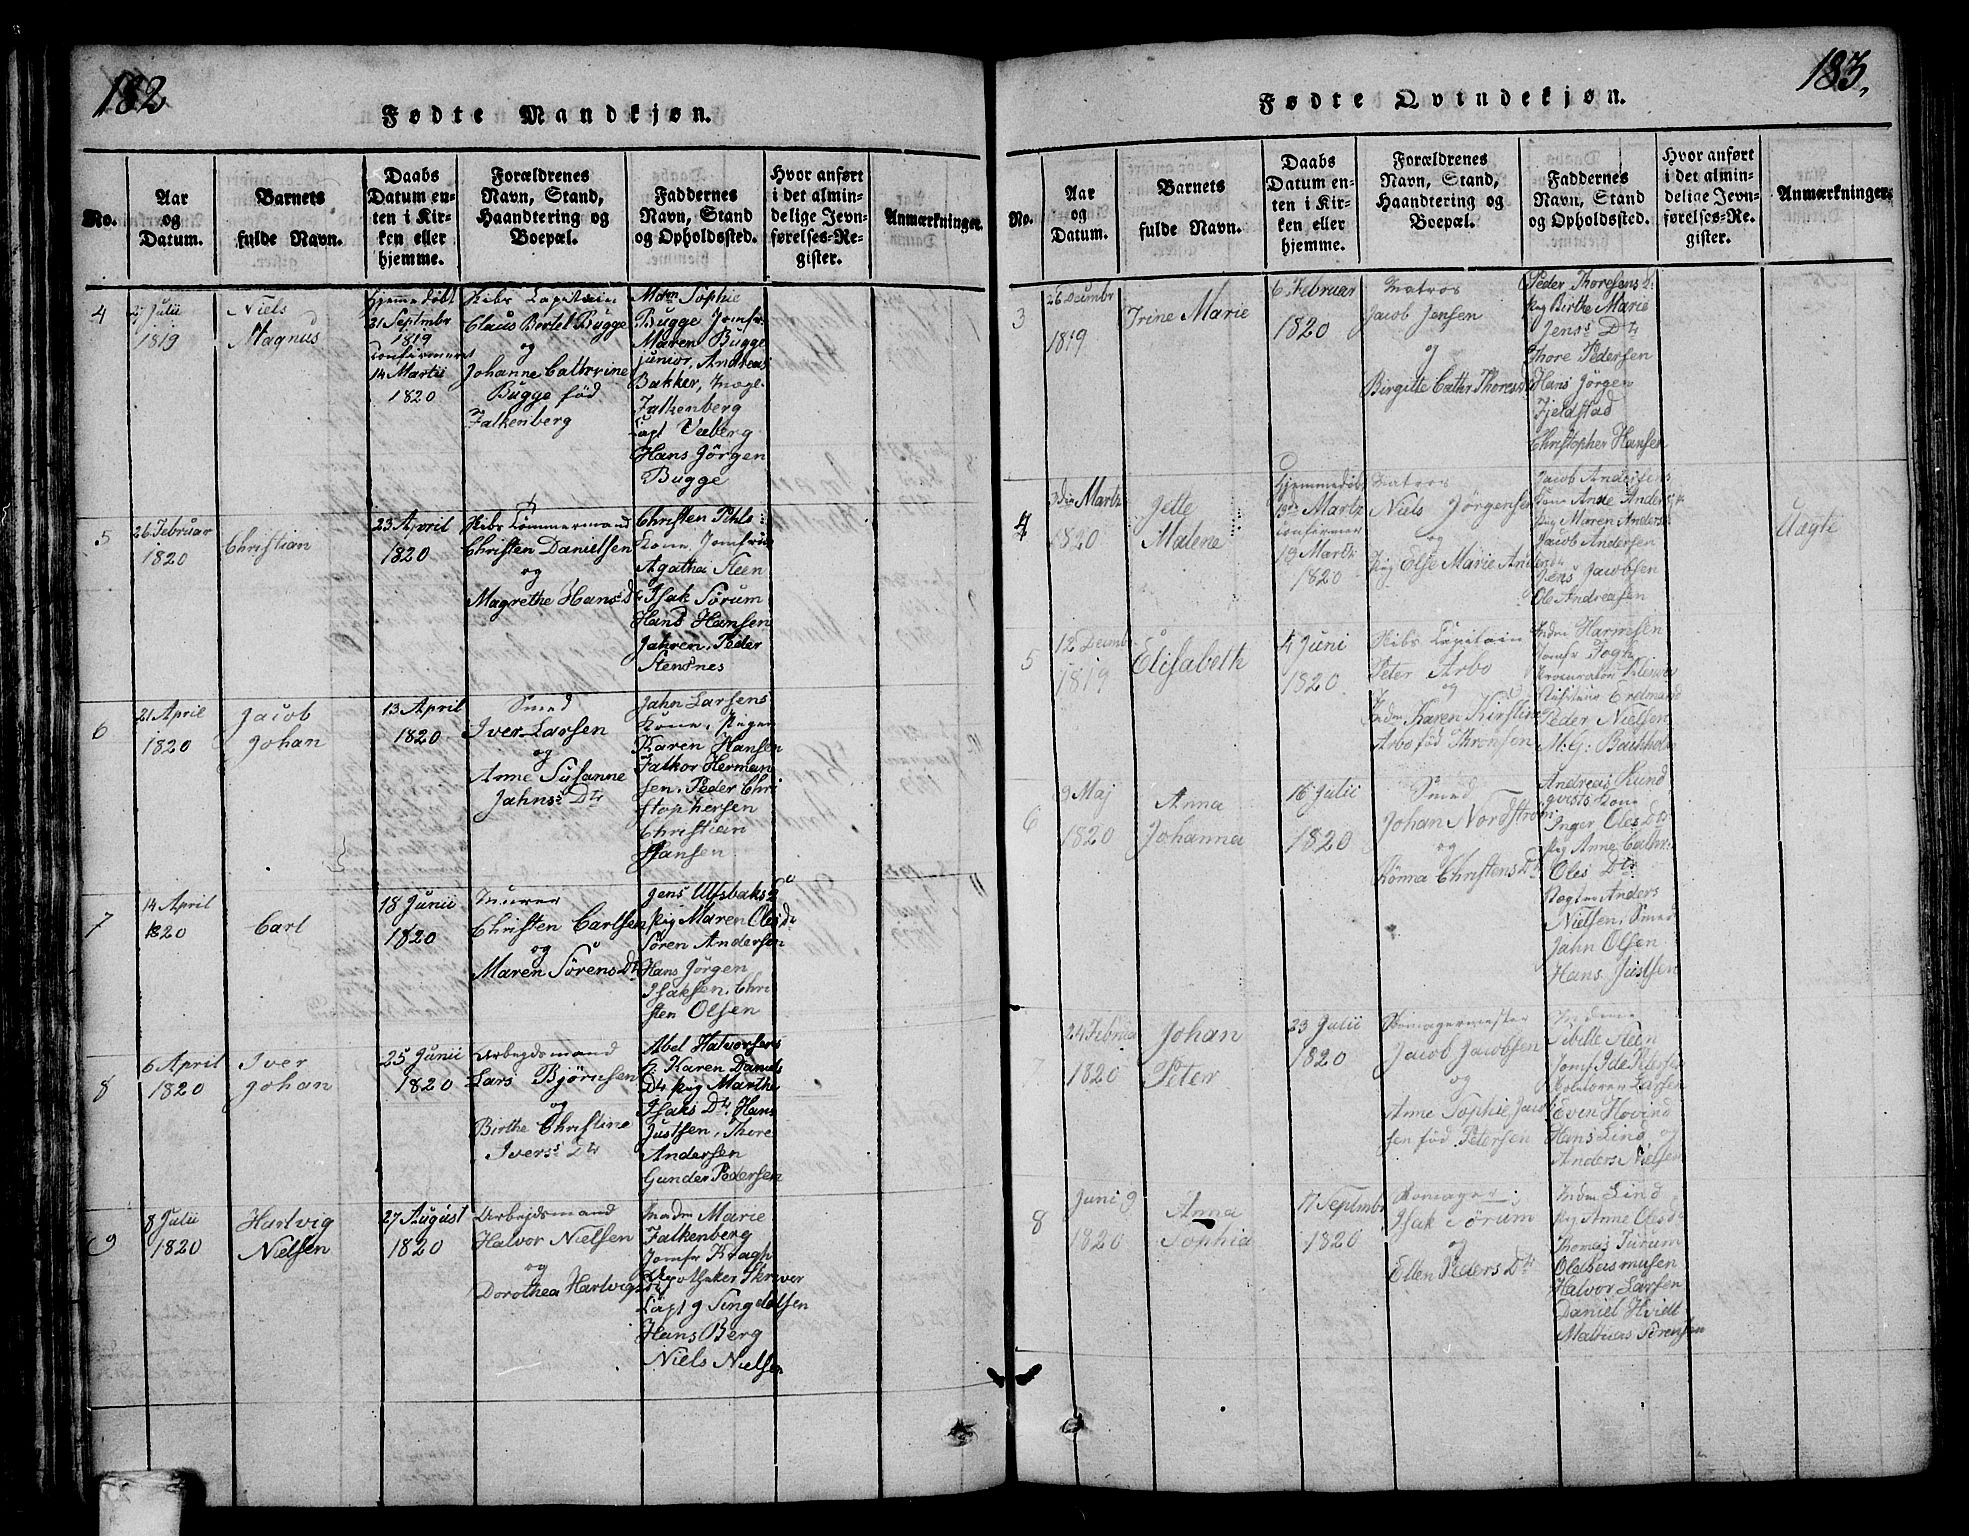 182
Fødte Mandkjøn.
No.
Aar
og
Datum.
Barnets
fulde Navn.
Daabs
Datum en-
ten i Kir-
ken eller
hjemme.
Forældrenes
Navn, Stand,
Haandtering og
Boepæl.
Faddernes
Navn, Stand
og Opholdssted.
Hvor anført
i det almin-
delige Jevn-
førelses-Re-
gister.
Anmærkninger.
4
27 Julii
1819
Niels
Magnus
Hjemmedøbt
21 Septmbr
1819
14 Martii
1820
Skibs Capitain
Claus Bertel Bugge
og
Johanne Cathrine
Bugge fød
Falkenberg
Madm Sophie
Bugge Jomfr.
Maren Bugge
junior, Andreas
Bakker,
Falkenberg
Capt Veeberg
Hans Jörgen
Bugge
5
26 Februar
1820
Christian
23 April
1820
Skibs Tömmermand
Christen Danielsen
og
Magrethe Hans Dtr
Christen Pihls
Kone, Jomfru
Agatha Steen
Isak Sørum
Hans Hansen
Jahren, Peder
Stensnes
6
21 April
1820
Jacob
Johan
13 April
1820
Smed
Iver Larsen
og
Anne Susanne
Jahns Dtr
Jahn Larsens
Kone, Pigen
Karen Hansen
Falkor Herman
sen, Peder Chri
stophersen
Christian
Hansen
7
14 April
1820
Carl
18 Junii
1820
Muurer
Christen Carlsen
og
Maren Sörens Dtr
Jens Ulfsbaks K
Pig Maren Oles Dr
Sören Andersen
Hans Jörgen
Isaksen, Chri
sten Olsen
8
6 April
1820
Iver
Johan
25 Junii
1820
Arbejdsmand
Lars Björnsen
og
Birthe Christine
Ivers Dtr
Abel Halvorsens
K Karen Daniels
Dtr Pig Marthe
Isaks Dtr Hans
Justsen, Thore
Andersen
Gunder Pedersen
9
8 Julii
1820
Hartvig
Nielsen
27 August
1820
Arbejdsmand
Halvor Nielsen
og
Dorothea Hartvigs Dtr
Madm Marie
Falkenberg
Jomfr Kragh
Apotheker Skriver
Capt g Singdalsen
Hans Berg
Niels Nielsen
183.
Fødte Qvindekjøn.
No.
Aar
og
Datum.
Barnets
fulde Navn.
Daabs
Datum en-
ten i Kir-
ken eller
hjemme.
Forældrenes
Navn, Stand,
Haandtering og
Boepæl.
Faddernes
Navn, Stand
og Opholdssted.
Hvor anført
i det almin-
delige Jevn-
førelses-Re-
gister.
Anmærkninger.
3
26 Decmbr
1819
Trine Marie
6 Februar
1820
Matros
Jacob Jensen
og
Birgitte Cathr Thores Dtr
Peder Thoresens K
Pig Birthe Marie
Jens Dtr
Thore Pedersen
Hans Jörgen
Fjeldstad
Christopher Hansen
4
3die Martz
1820
Jitte
Malene
Hjemmedøbt
Martz
Confirmer
19 Martz
1820
Matros
Niels Jörgensen
og
Pig Else Marie Anders Dtr
Jacob Andersens
Kone Anne Anders
Pig Maren Anders
Jacob Andersen
Jens Jacobsen
Ole Andreasen
Uægte
5
12 Decmbr
1819
Elisabeth
4 Juni
1820
Skibs Capitain
Peter Arbo
og
Madm Karen Kirstine
Arbo fød Thronsen
Madm Harmsen
Jomfr Fogh
Procurator
Erdmand
Peder Nielsen
M: G: Backholm
6
9 Maj
1820
Anna
Johanna
16 Julii
1820
Smed
Johan Nordström
og
Rönna Christens Dtr
Andreas Kund
qvists Kone
Inger Oles D
Pig Anne Cathr:
Oles Dtr
Anders
Nielsen, Smed
Jahn Olsen
Hans Justsen
7
24 Februar
1820
Johan
Peter
23 Julii
1820
Skomagermester
Jacob Jacobsen
og
Anne Sophie Jacob
sen fød Petersen
Madme
Sibille Steen
Jomf Ide Peterse
Larsen
Even Hovind
Hans Lind, og
Anders Nielsen
8
Juni 9
1820
Anna
Sophia
17 Septmbr
1820
Skomager
Isak Sörum
og
Ellen Peders Dtr
Madm Lind
Pig Anne Oles Dr
Thomas Furum
Ole Rasmusen
Halvor Larsen
Daniel Hvidt
Mathias Sörensen